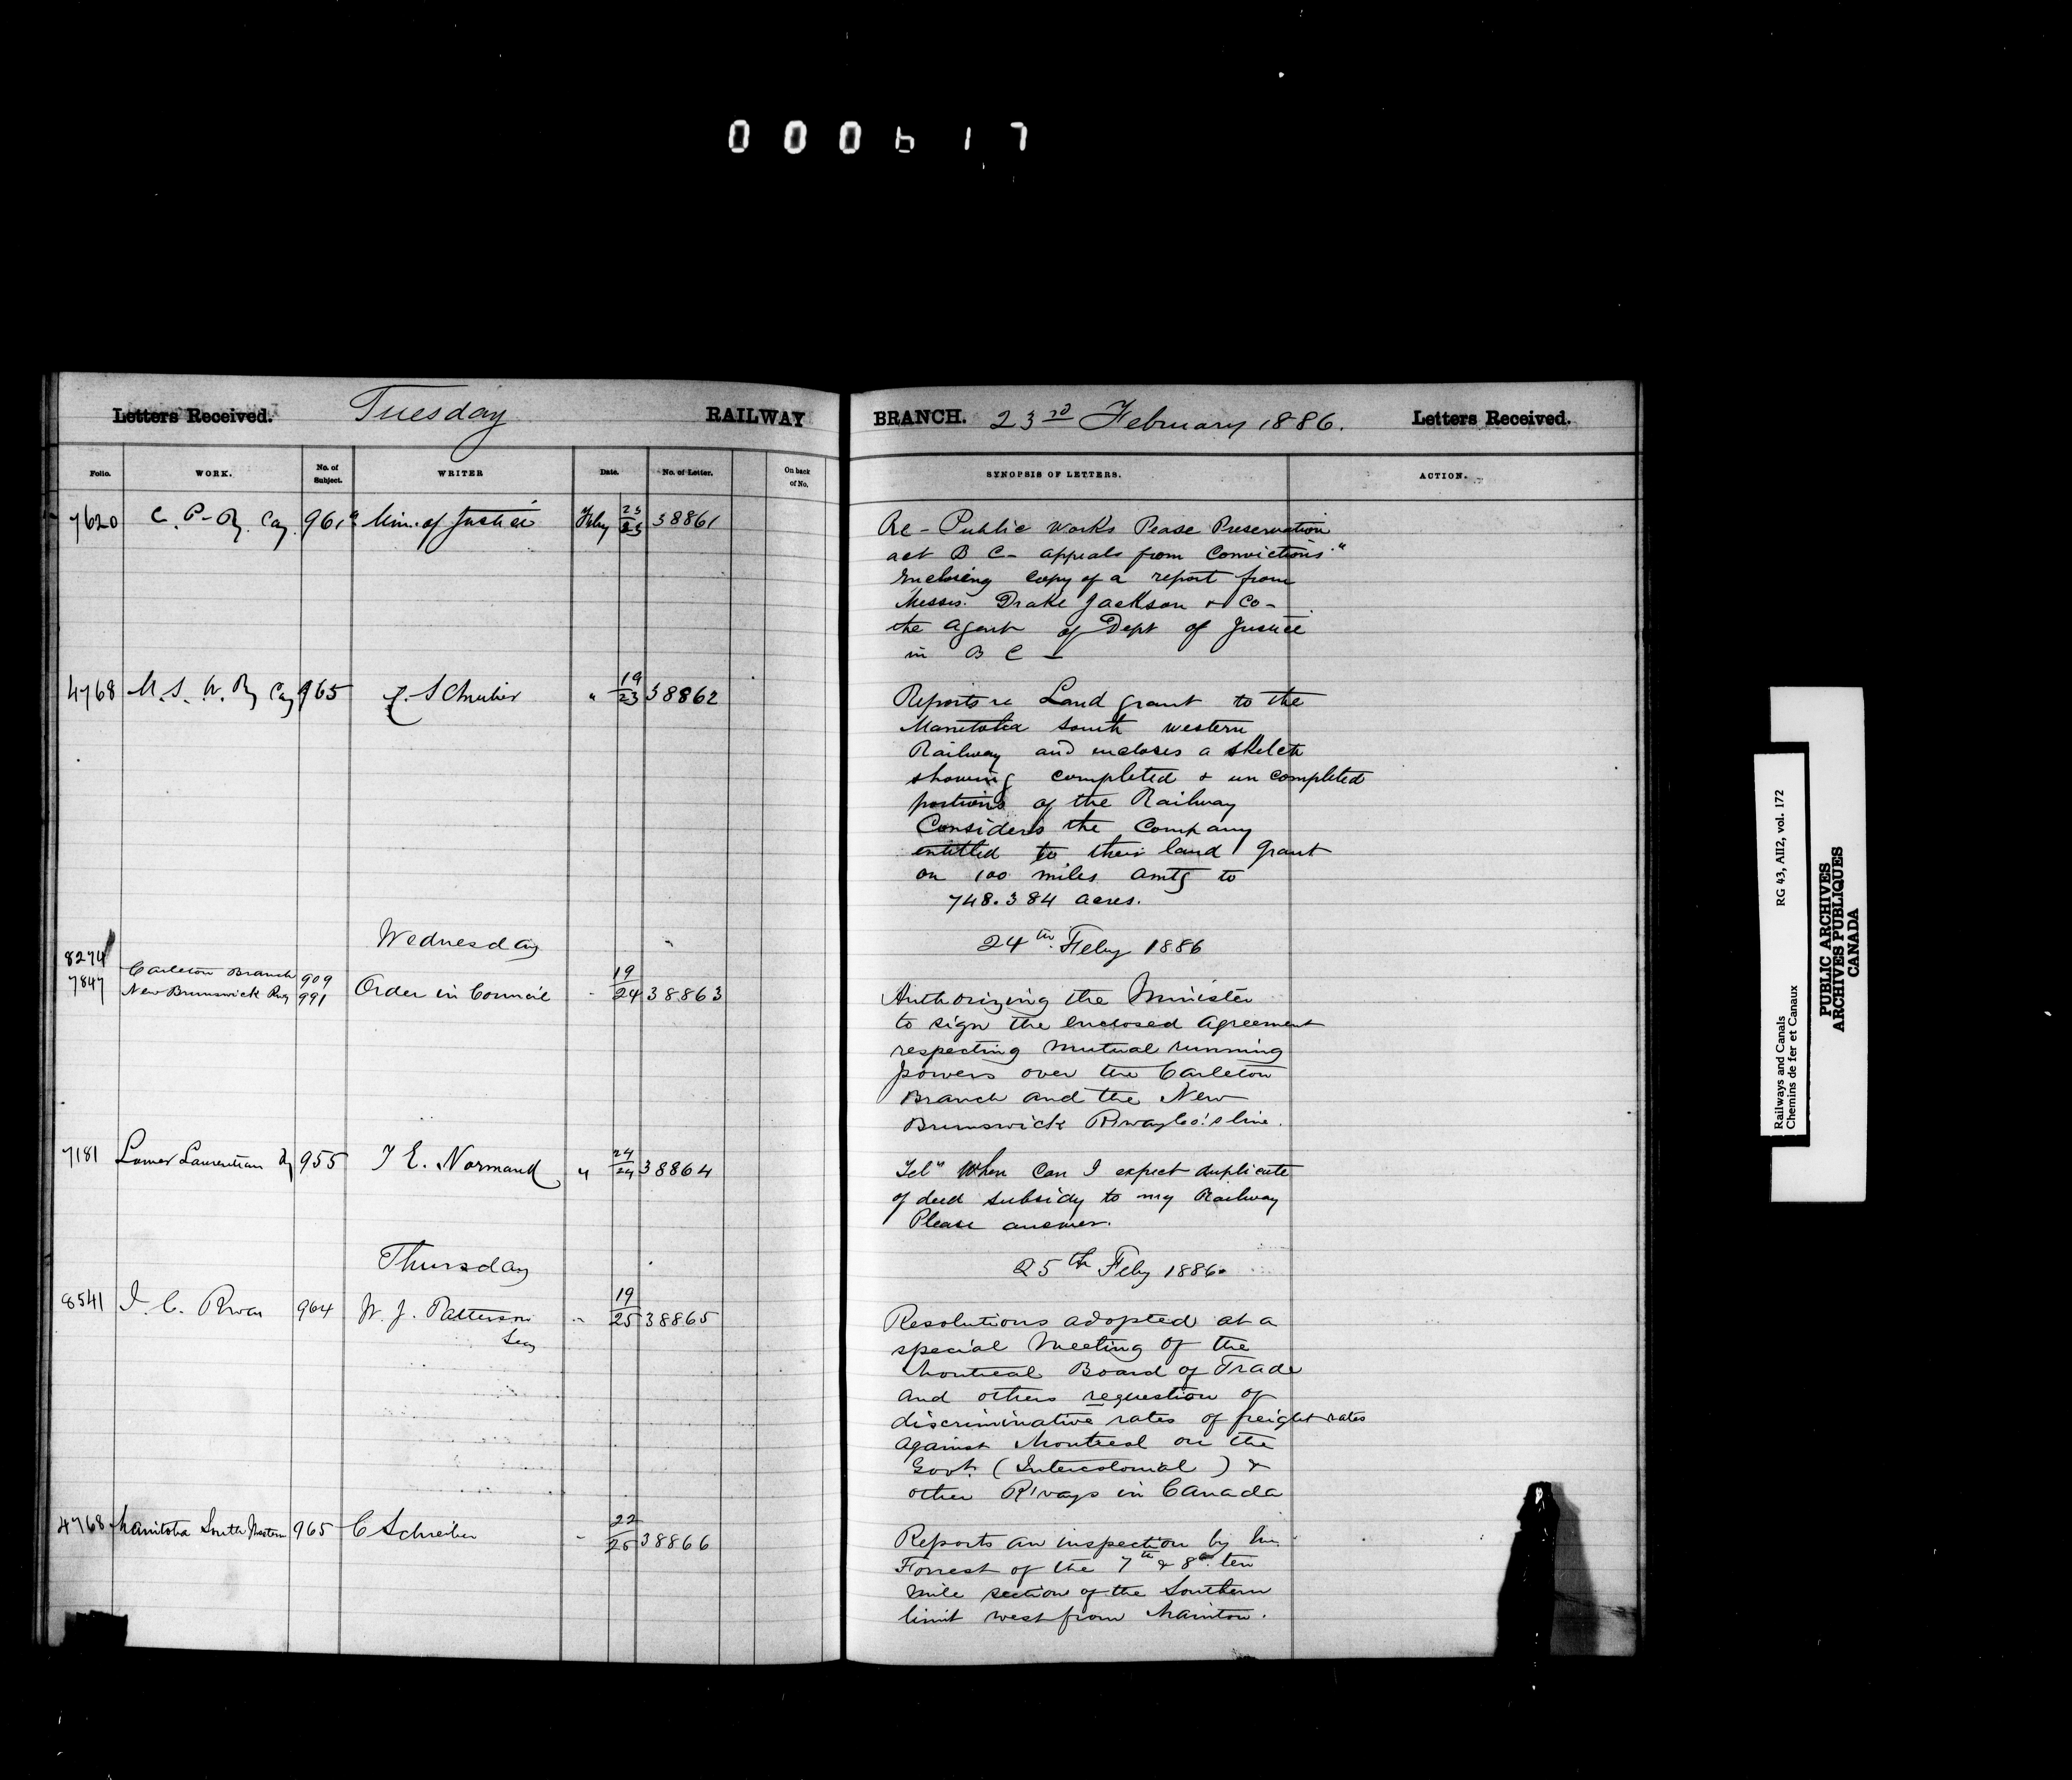 000617
Letters Received. Tuesday RAILWAY BRANCH. 23rd February 1886. Letters Received.
Folio. WORK. No. of Subject. WRITER Date. No. of Letter. On back of No. SYNOPSIS OF LETTERS. ACTION.
7620 C. P. Ry. Coy 961 Min. of Justice Feby 23/23 38861
Re - Public Works Pease Preservation
act B C - appeals from Convictions"
Enclosing copy of a report from
Messrs. Drake Jackson & Co -
the agent of Dept of Justice
in B C -
4768 M. S. W. Ry Coy 965 C. Schreiber " 19/23 38862
Reports re Land grant to the
Manitoba South western
Railway and incloses a sketch
showing completed & uncompleted
portions of the Railway
Considers the Company
entitled to their land grant
on 100 miles amtg to
748.384 acres.
Wednesday 24th Feby 1886
8274 Carleton Branch 909
7847 New Brunswick Rwy 991 Order in Council " 19/24 38863
Authorizing the Minister
to sign the enclosed agreement
respecting mutual running
powers over the Carleton
Branch and the New
Brunswick Rway Co's line.
7181 Lower Laurentian Ry 955 T E. Normand " 24/24 38864
Tel" When can I expect duplicate
of deed subsidy to my Railway
Please answer.
Thursday 25th Feby 1886.
8541 I. C. Rway 964 W. J. Patterson " 19/25 38865
Secy
Resolutions adopted at a
special Meeting of the
Montreal Board of Trade
and others re question of
discriminative rates of freight rates
against Montreal on the
Govt. (Intercolonial) &
other R'ways in Canada
4768 Manitoba South Western 965 C Schreiber " 22/25 38866
Reports an inspection by Mr.
Forrest of the 7th & 8th ten
mile section of the Southern
limit west from Manitou.
Railways and Canals RG 43, AII2, vol. 172
Chemins de fer et Canaux
PUBLIC ARCHIVES
ARCHIVES PUBLIQUES
CANADA